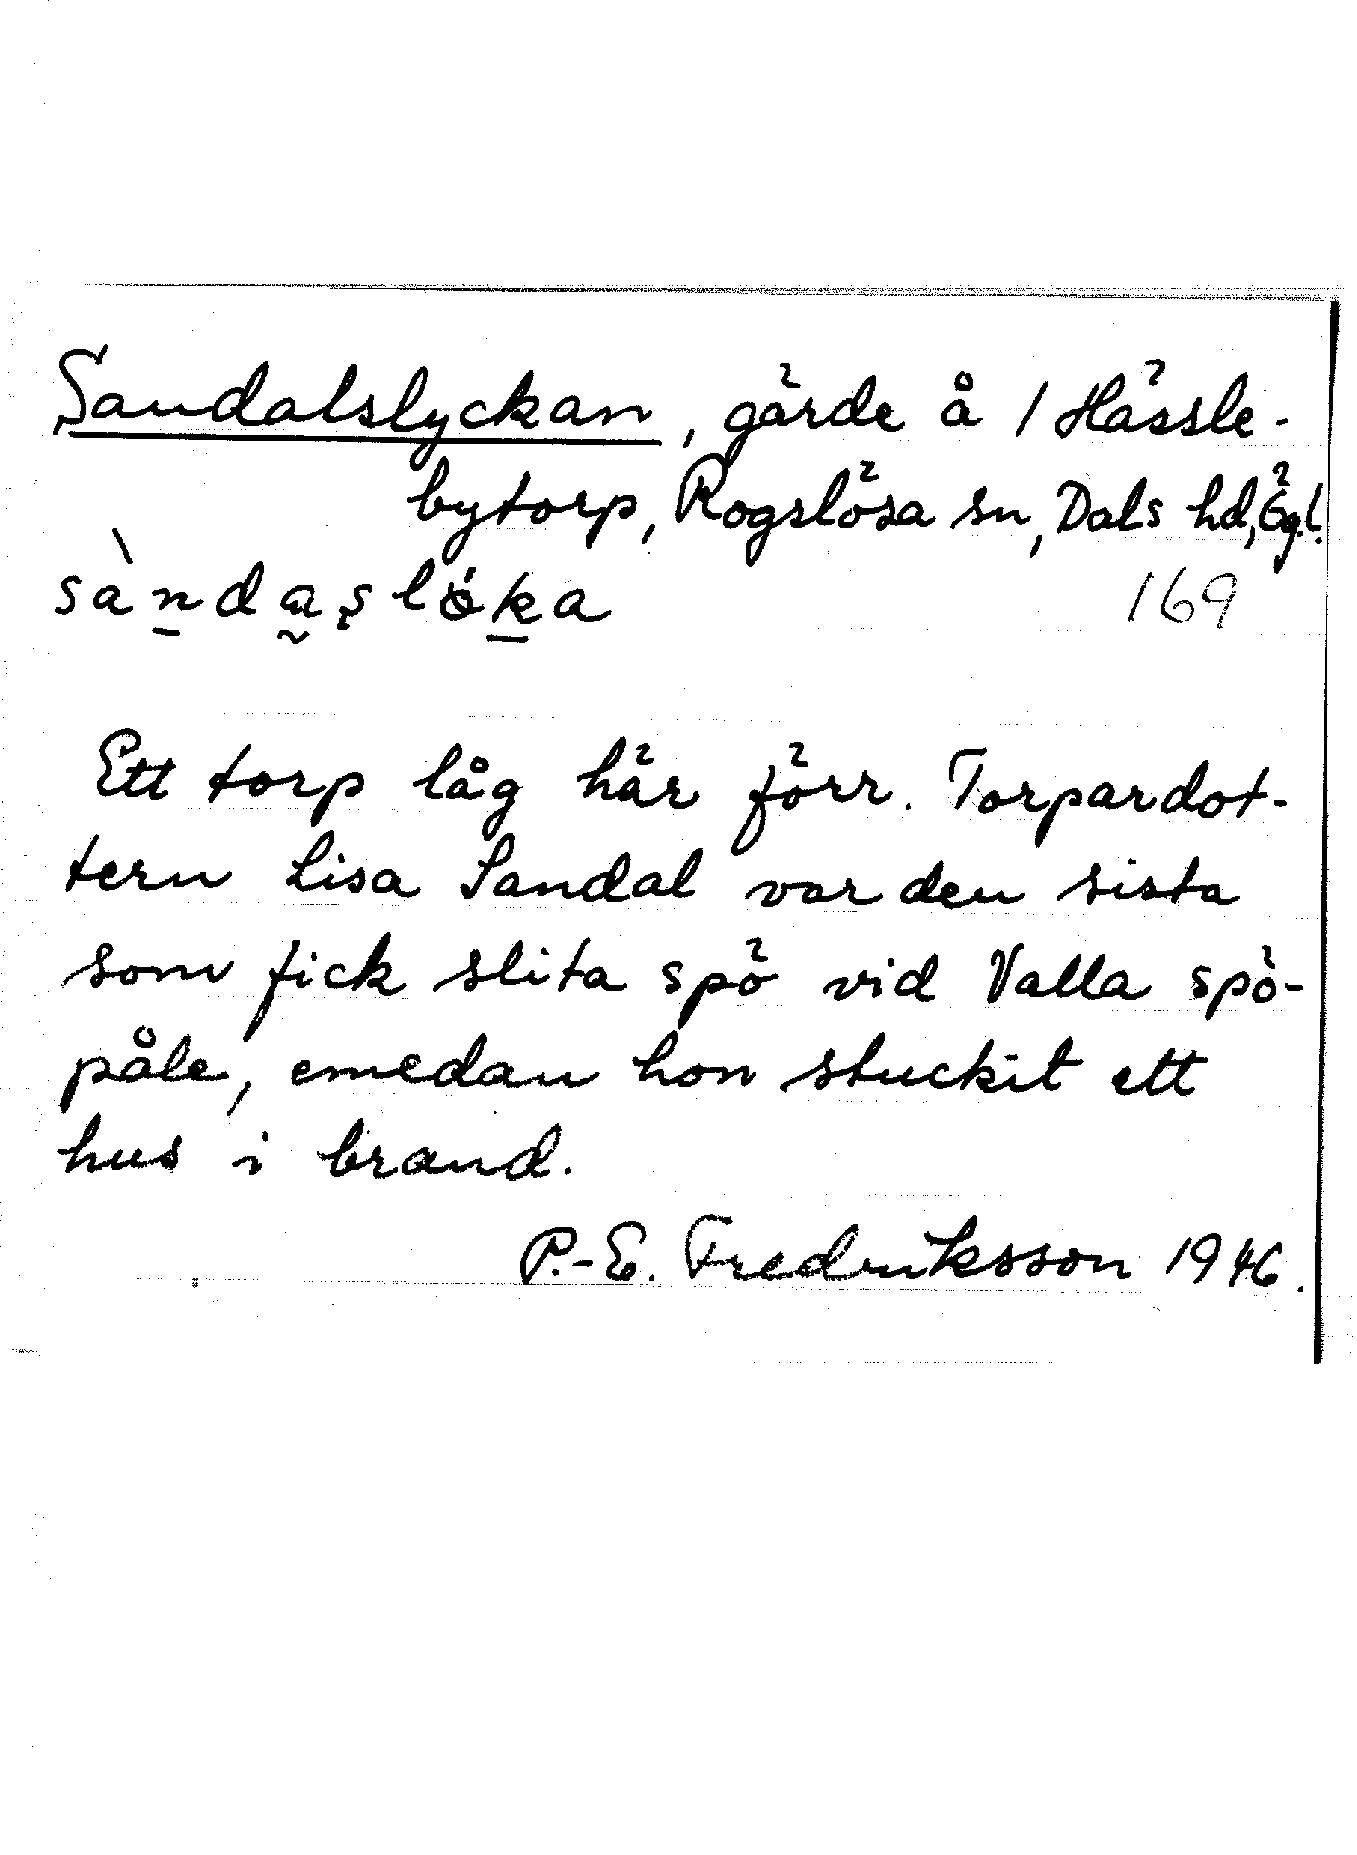 Sandalslyckan, gärde å 1 Hässle-
bytorp, Rogslösa sn, Dals hd, Ög.l.
sàndaslöka 169
Ett torp låg här förr. Torpardot-
tern Lisa Sandal var den sista
som fick slita spö vid Valla spö-
påle, emedan hon stuckit ett
hus i brand.
P.-E. Fredriksson 1946.